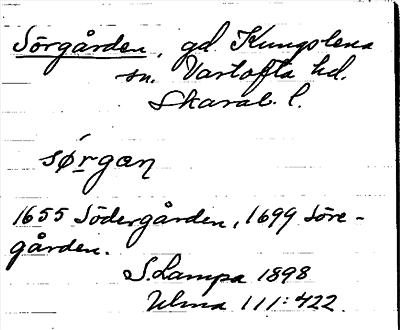 Sörgården, gd Kungslena
sn. Vartofta hd.
Skarab. l.
sǿrgæn
1655 Södergården, 1699 Söre-
gården.
S. Lampa 1898
Ulma 111:422.